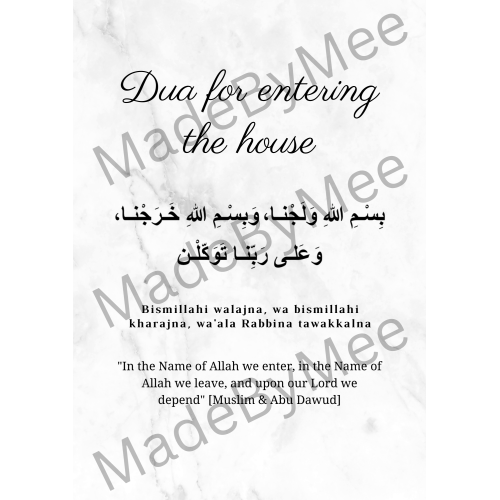 Dua for entering
the house
بِسْمِ اللهِ وَلَجْنـا، وَبِسْـمِ اللهِ خَـرَجْنـا،
وَعَلـى رَبِّنـا تَوَكّلْـن
Bismillahi walajna, wa bismillahi
kharajna, wa'ala Rabbina tawakkalna
"In the Name of Allah we enter, in the Name of
Allah we leave, and upon our Lord we
depend" [Muslim & Abu Dawud]
MadeByMee
MadeByMee
MadeByMee
MadeByMee